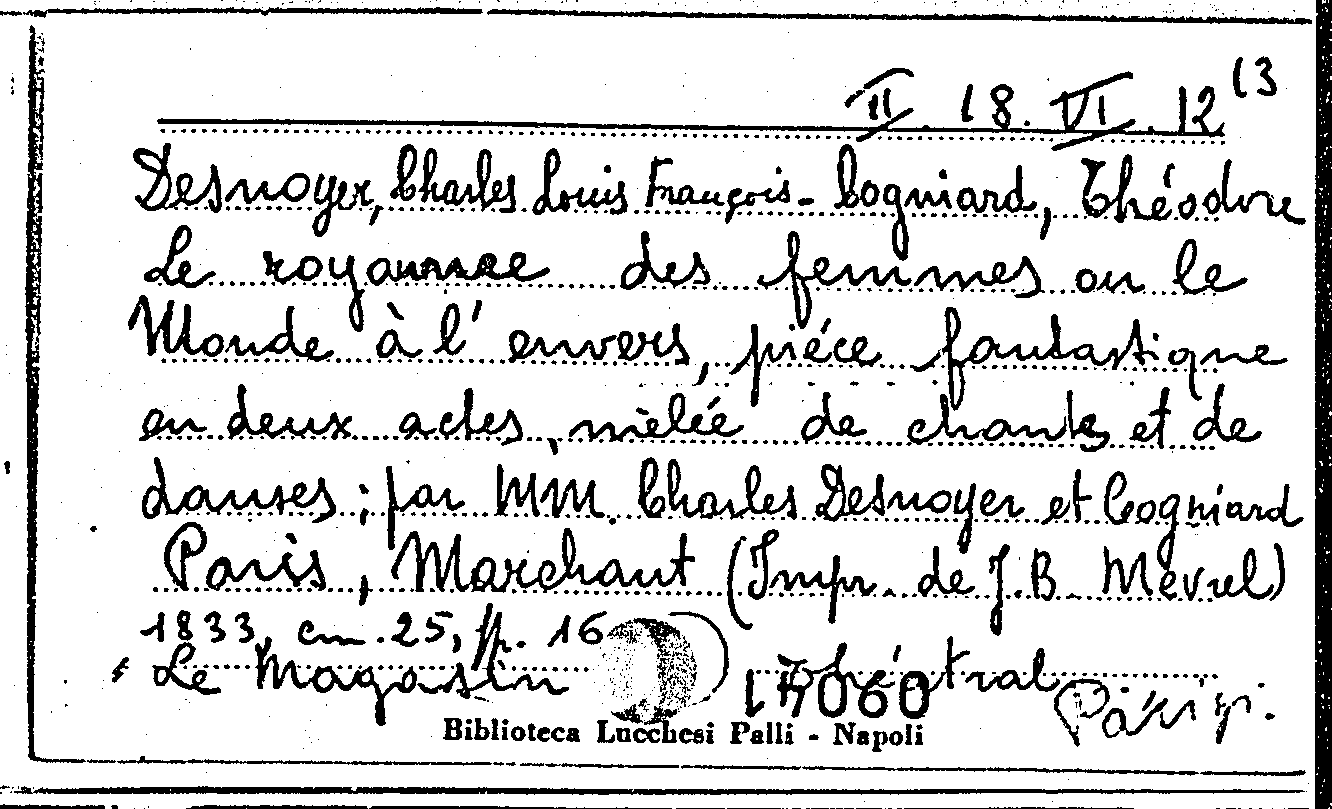 II. 18. VI. 12 13
Desnoyer, Charles Louis François - Cogniard, Théodore
Le royaumee des femmes ou le
Monde à l'envers, piéce fantastique
en deux actes, mèlée de chants et de
danses; par MM. Charles Desnoyer et Cogniard
Paris, Marchant (Impr. de J. B. Mevrel)
1833, cm. 25, pp. 16
Le Magasin Théatral
Biblioteca Lucchesi Palli - Napoli